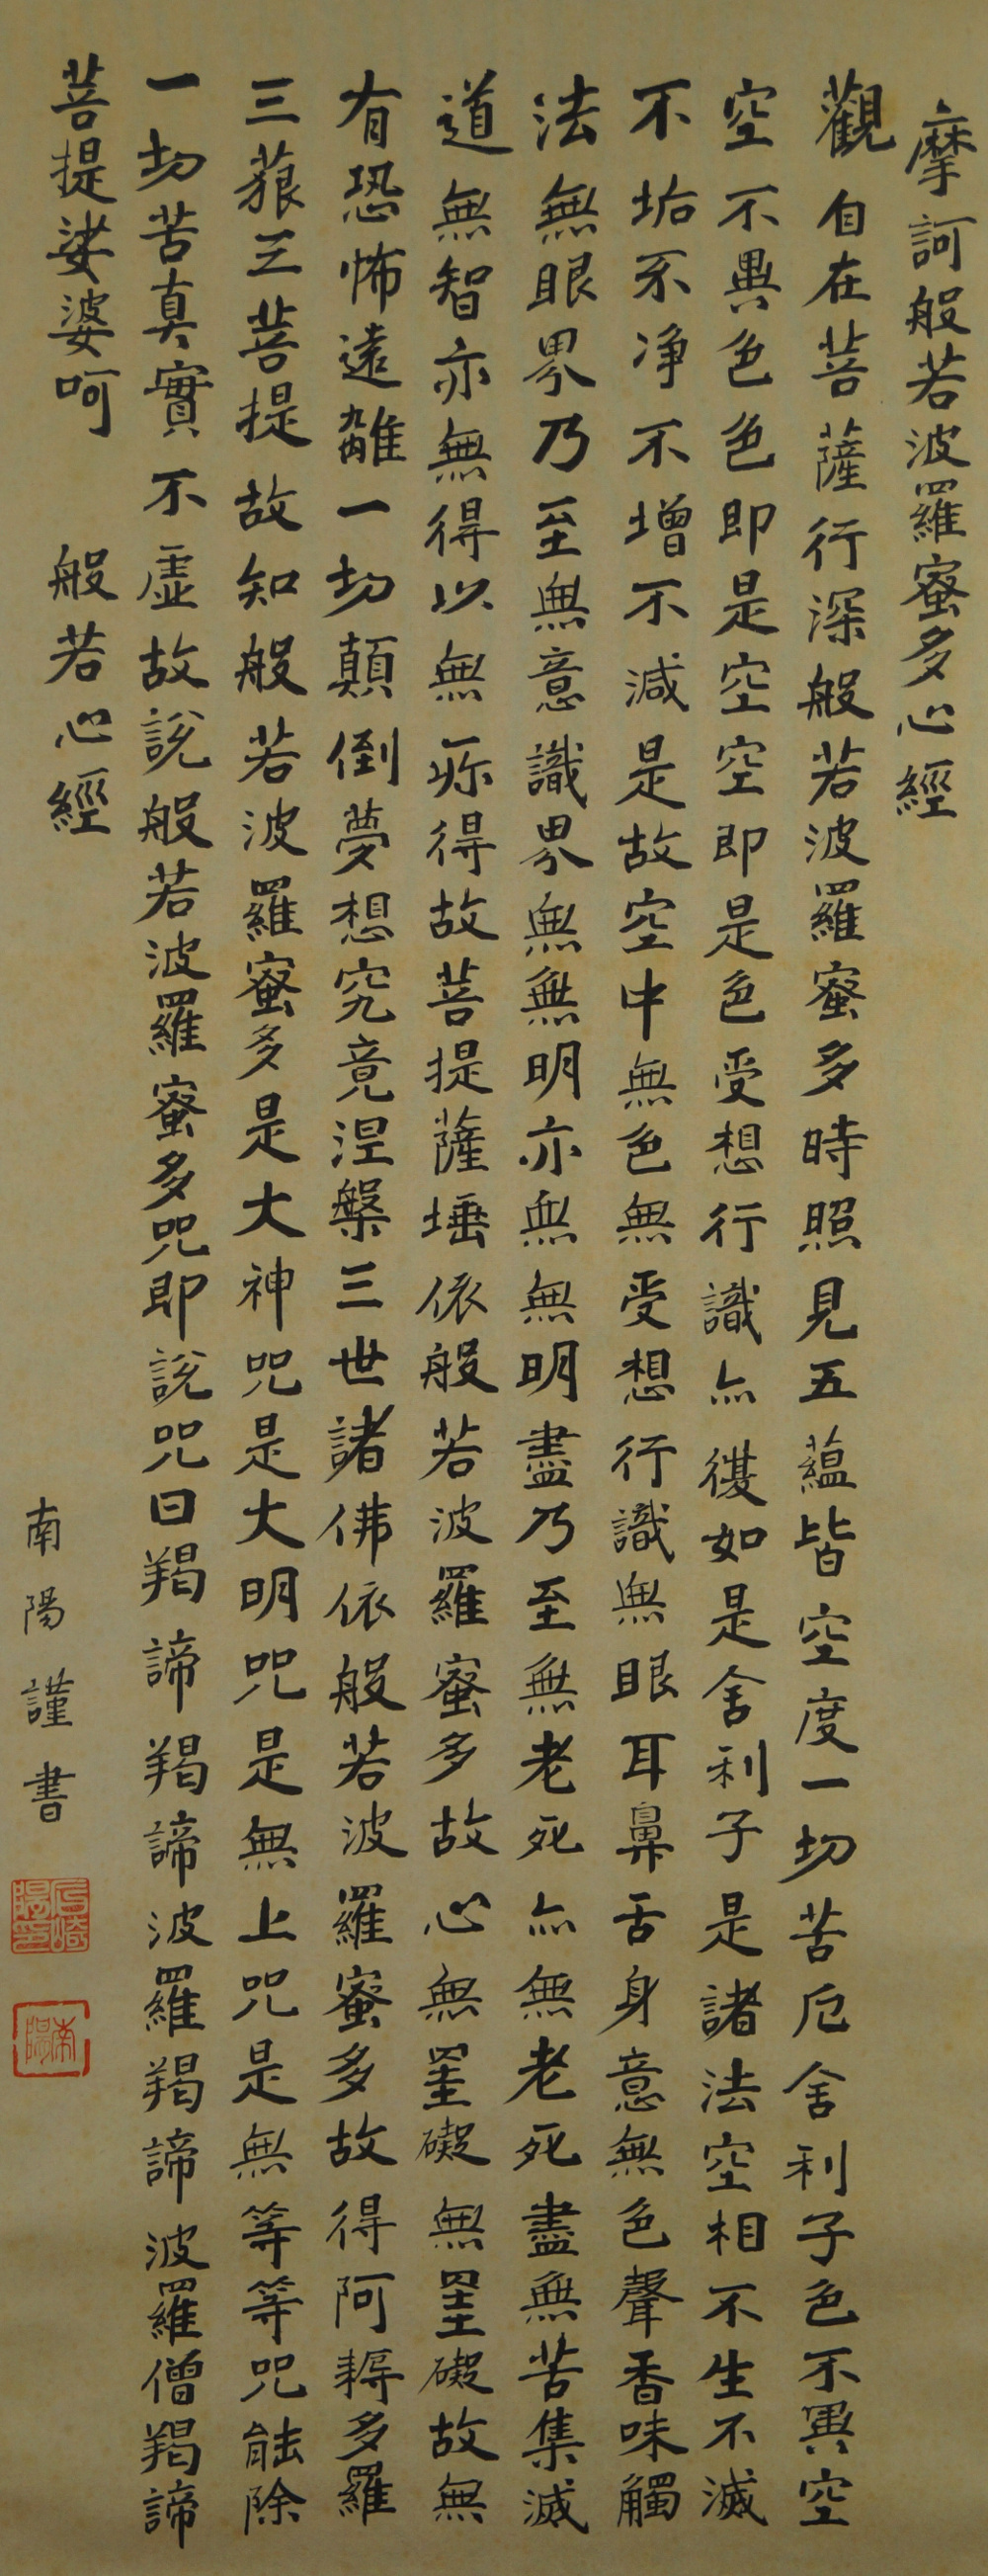 摩訶般若波羅蜜多心經
觀自在菩薩行深般若波羅蜜多時照見五蘊皆空度一切苦厄舍利子色不異空
空不異色色即是空空即是色受想行識亦復如是舍利子是諸法空相不生不滅
不垢不淨不增不減是故空中無色無受想行識無眼耳鼻舌身意無色聲香味觸
法無眼界乃至無意識界無無明亦無無明盡乃至無老死亦無老死盡無苦集滅
道無智亦無得以無所得故菩提薩埵依般若波羅蜜多故心無罣礙無罣礙故無
有恐怖遠離一切顛倒夢想究竟涅槃三世諸佛依般若波羅蜜多故得阿耨多羅
三藐三菩提故知般若波羅蜜多是大神咒是大明咒是無上咒是無等等咒能除
一切苦真實不虛故說般若波羅蜜多咒即說咒曰羯諦羯諦波羅羯諦波羅僧羯諦
菩提娑婆呵 般若心經
南陽謹書
南陽